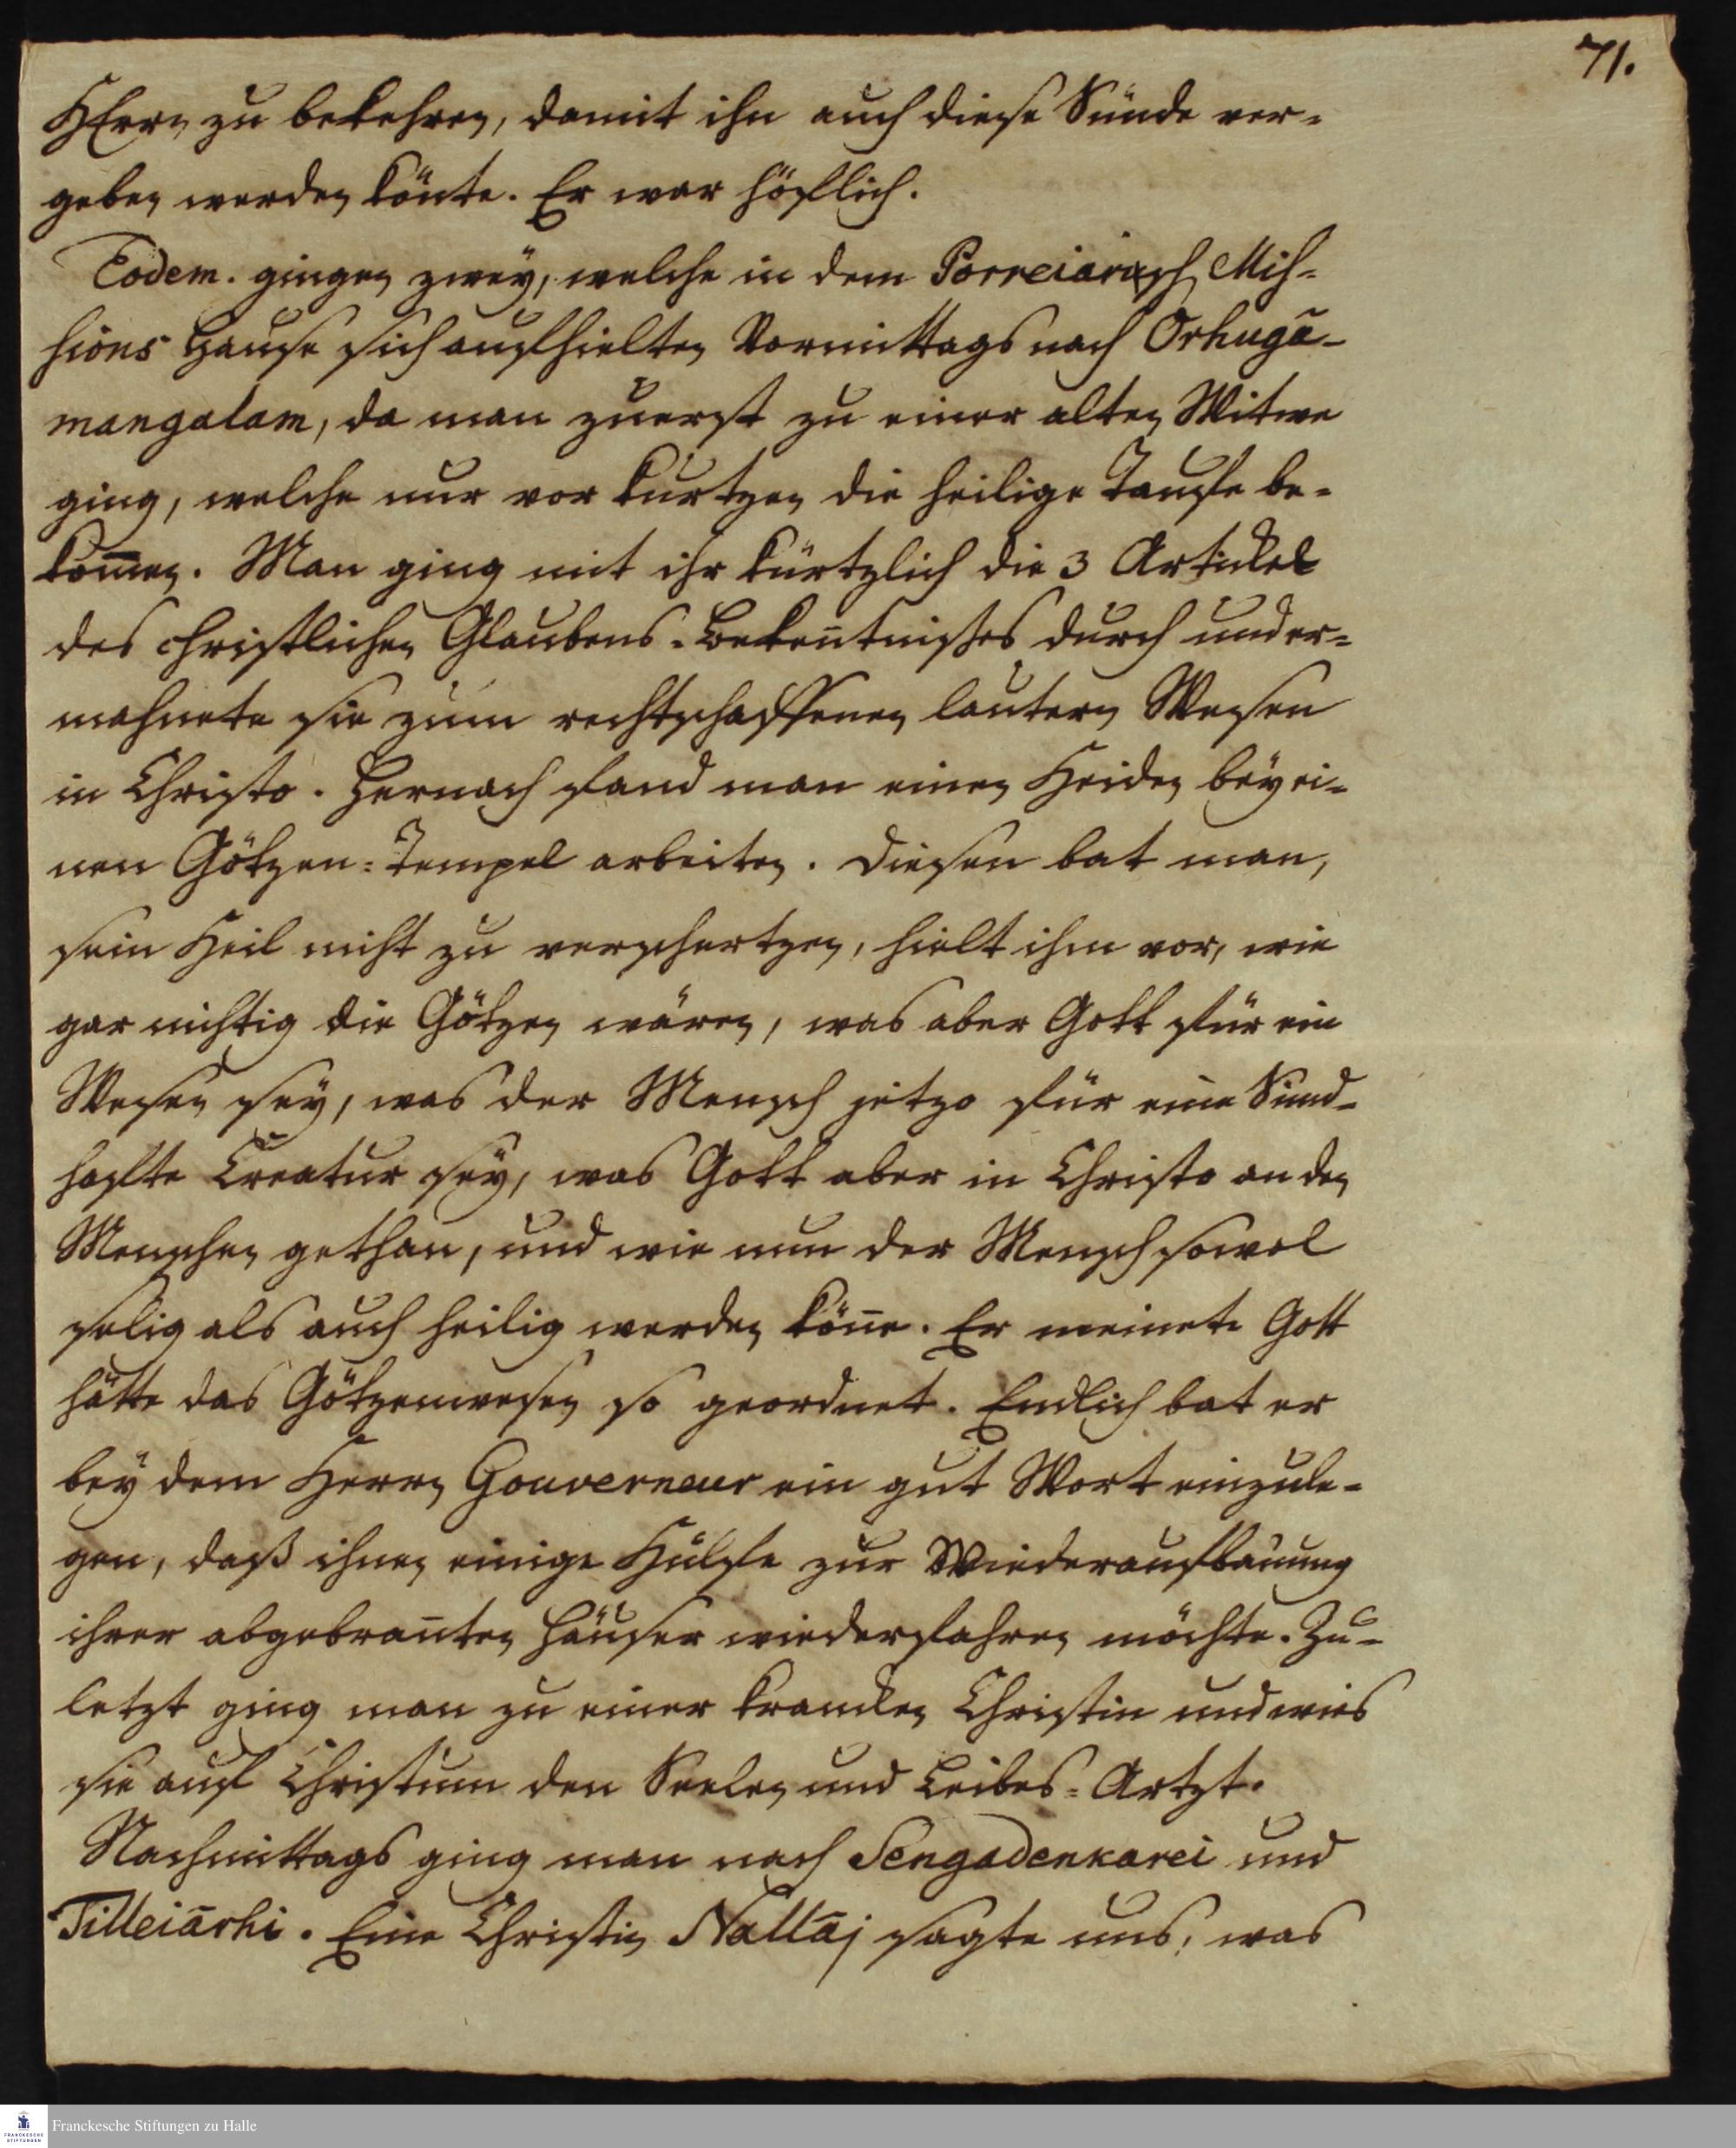 71.
HErrn zu bekehren, damit ihn auch diese Sünde ver-
geben werden könte. Er war höflich.
Eodem. gingen zwey, welche in dem Porreiarisch Mis-
sions Hause sich aufhielten Vormittags nach Orhugā-
mangalam, da man zuerst zu einer alten Witwe
ging, welche nur vor kurtzen die heilige Taufe be-
kom̅en. Man ging mit ihr kürtzlich die 3 Artickel
des christlichen Glaubens-Beken̅tnißes durch und er-
mahnete sie zum rechtschaffenen lautern Wesen
in Christo. Hernach fand man einen Heiden bey ei-
nen Götzen-Tempel arbeiten. Diesen bat man,
sein Heil nicht zu verschertzen, hielt ihm vor, wie
gar nichtig die Götzen wären, was aber Gott für ein
Wesen sey, was der Mensch jetzo für eine Sünd-
hafte Creatur sey, was Gott aber in Christo an den
Menschen gethan, und wie nun der Mensch sowol
selig als auch heilig werden kön̅e. Er meinete Gott
hätte das Götzenwesen so geordnet. Endlich bat er
bey dem Herrn Gouverneur ein gut Wort einzule-
gen, daß ihnen einige Hülfe zur Wiederaufbauung
ihrer abgebran̅ten Häuser wiederfahren möchte. Zu-
letzt ging man zu einer krancken Christin und wies
sie auf Christum den Seelen und Leibes-Artzt.
Nachmittags ging man nach Sengadenkarei und
Tilleiārhi. Eine Christin Nallāj sagte uns, was
Franckesche Stiftungen zu Halle
FRANCKESCHE
STIFTUNGEN